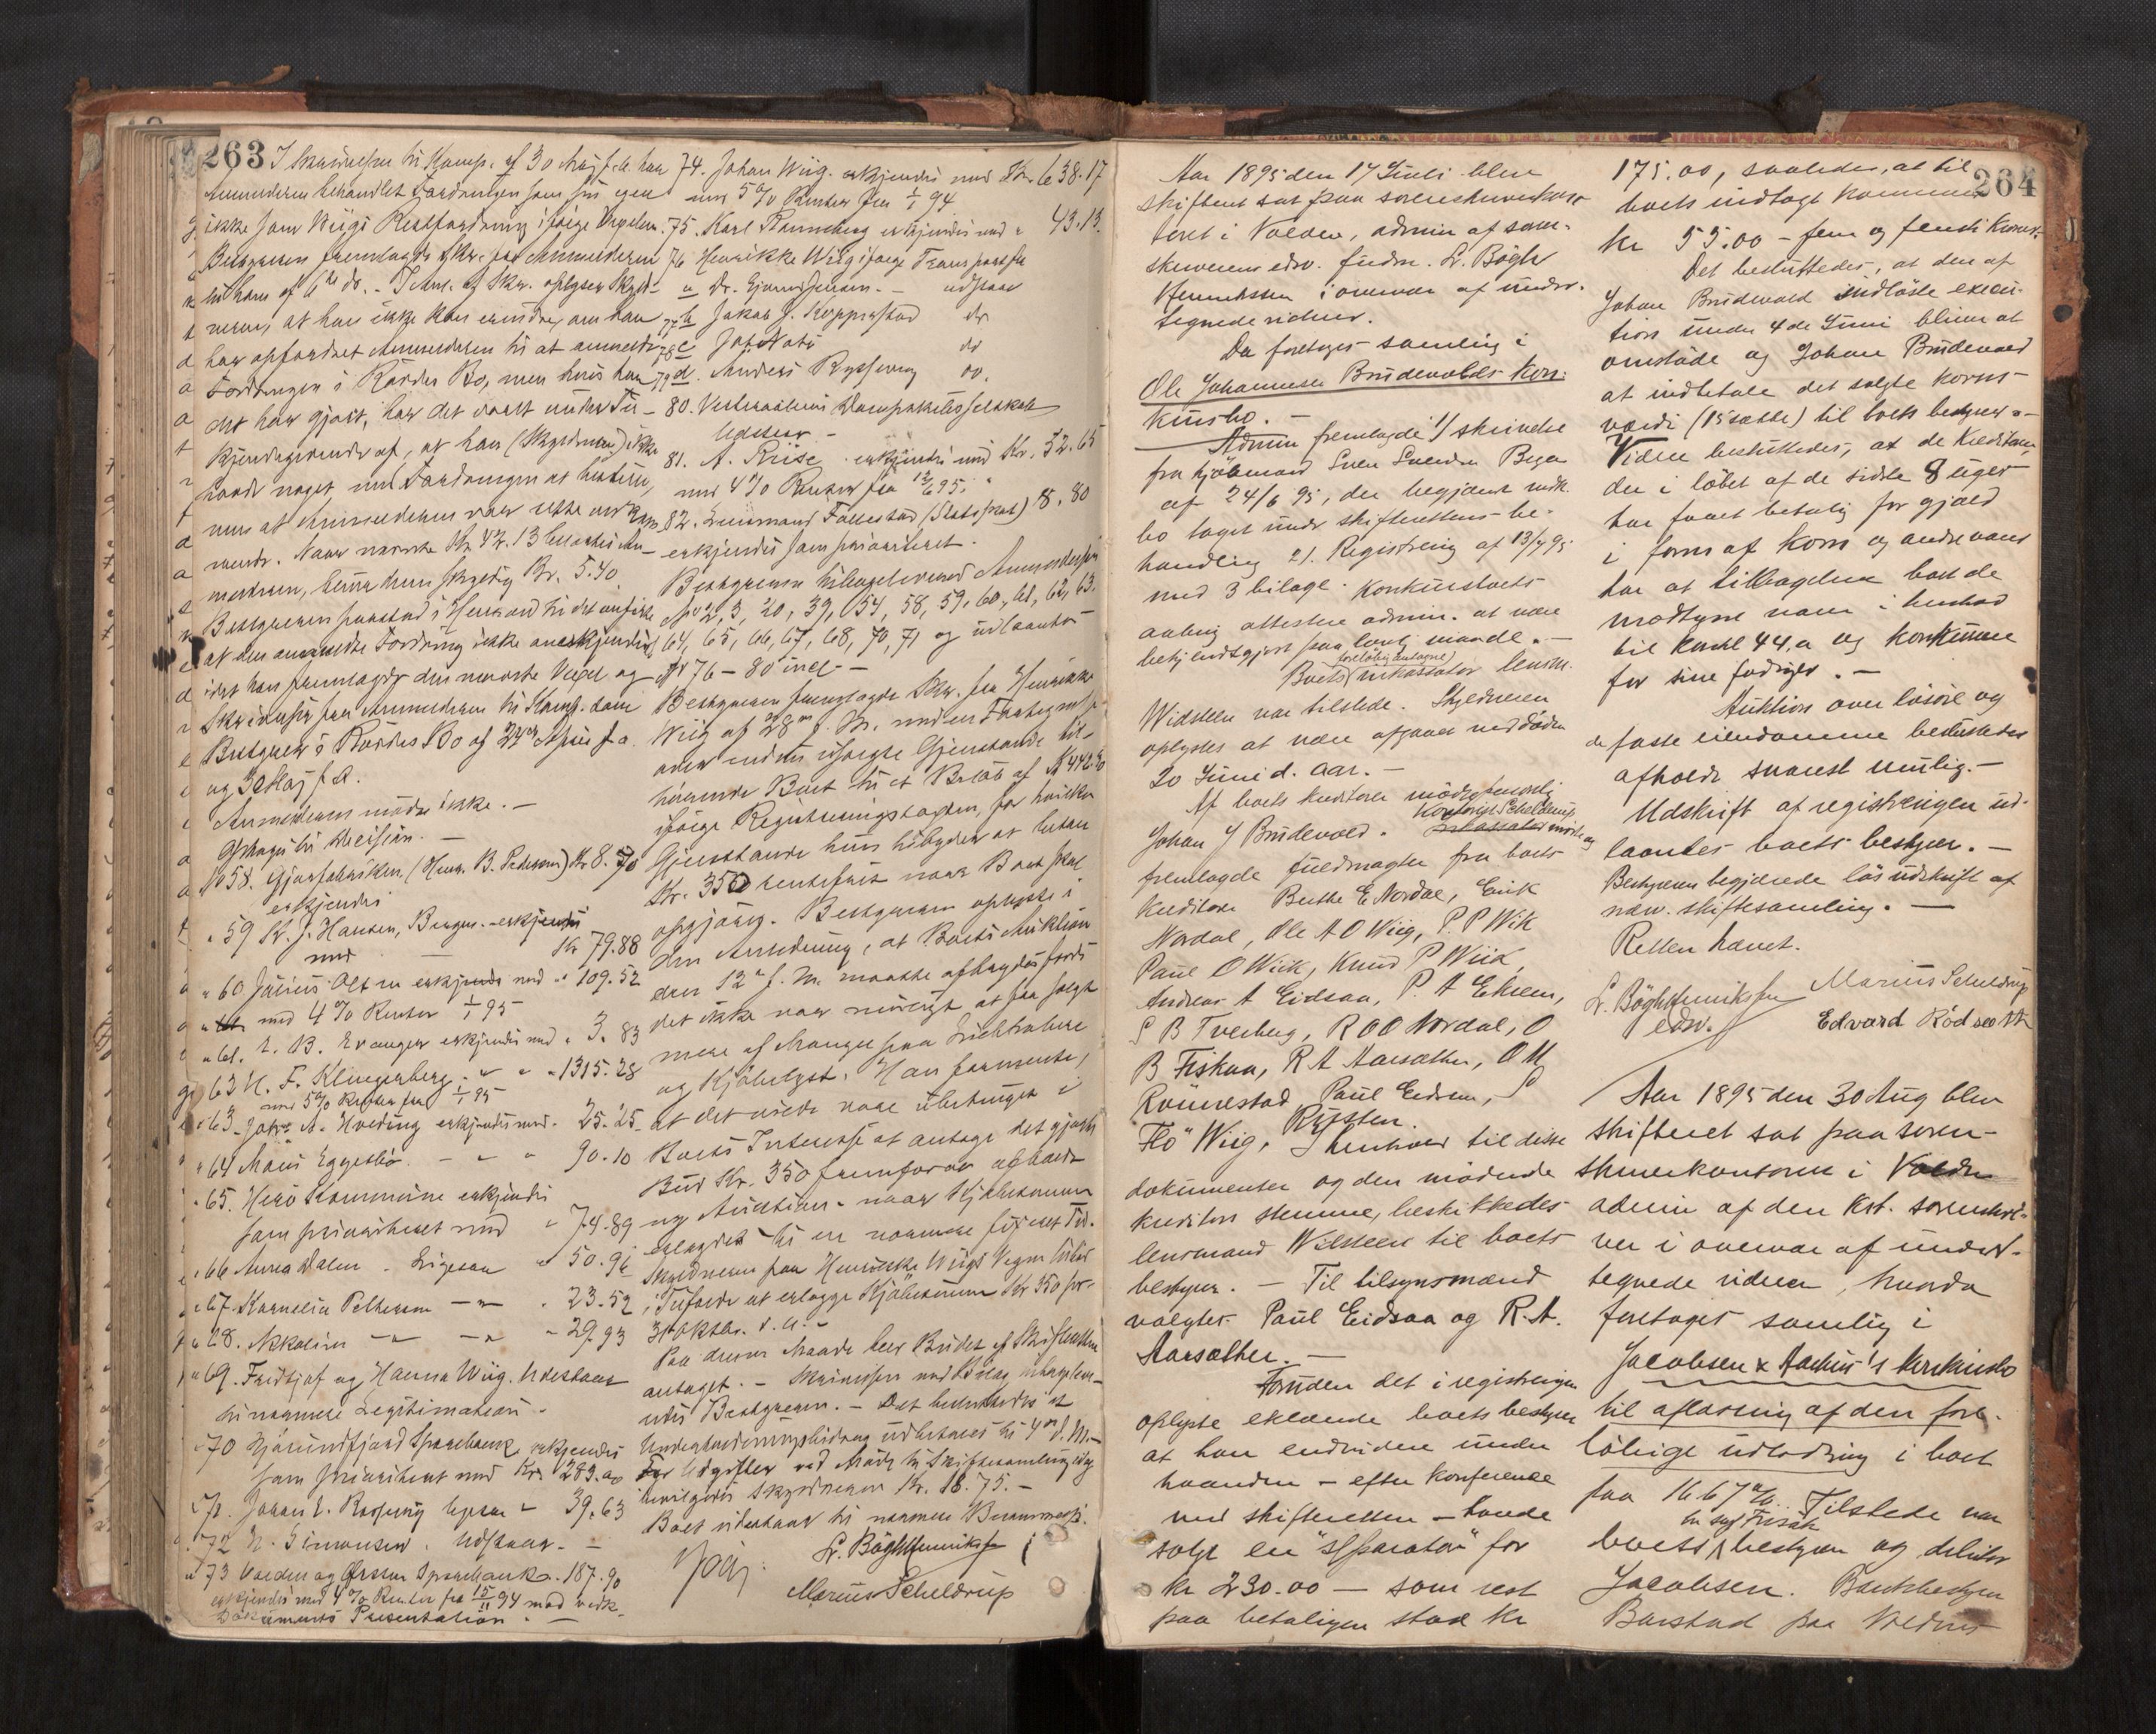 263
I Skrivelse til Komp. af 30 Maj f. A. har
Anmelderen behandlet Fordringen som sin egen
ikke som Wiigs Restfordring ifølge Vexelen.
Bestyreren fremlagde Skr. fra Anmelderen
til ham af 6te ds. - I Anl. af Skr. oplyser Skyld-
neren, at han ikke kan erindre, om han
har opfordret Anmelderen til at anmelde
Fordringen i Bo, men hvis han
det har gjort, har det været under Til-
kjendegivende af, at han (Skyldneren) ikke
havde noget med Fordringen at bestille,
men at Anmelderen var rette
Naar Kr. 42.13
Kr. 5.40
Bestyreren paastod i Henhold til det anførte
at den anmeldte Fordring ikke anerkjendes
idet han fremlagde den nævnte Vexel og
Skrivelse fra Anmelderen til Komp. samt
Bestyrer i Bo af April f. a.
og 30 Maj f. A.
Anmelderen mødte ikke. -
Optages til Decision. -
No 58. (Henr. B. Pedersen) Kr 8.70
erkjendes
" 59 H. J. Hansen, Bergen. erkjendes
med - Kr 79.88
" 60 Julius Olsen erkjendes med " 109.52
med 4 % Renter 1/1 95
" 61. E. B. Evanger erkjendes med " 3.83
62 H. F. Klingenberg " " " 1315.28
med 5 % Renter fra 1/1 95
" 63. Hveding erkjendes med " 25.25
" 64 Eggesbø - " " 90.10
" 65. Herø Kommune erkjendes
som prioriteret med " 74.89
" 66 Anna Dalen - Ligesaa " 50.96
" 67. Kornelia Pettersen - " - " 23.52
" 28. - " - " " 29.93
" 69. Fridtjof og Hanna Wiig. Udestaar
til nærmere Legitimation -
" 70 Hjørundfjord Sparebank erkjendes
som prioriteret med Kr. 283.00
" 71. Johan E. ligesaa " 39.63
" 72 N. Simonsen. Udstaar. -
" 73 Volden og Ørsten Sparebank 187.90
erkjendes med 4 % Renter fra 15/11 94 mod vedk.
Dokuments Præsentation. -
74. Johan Wiig. erkjendes med Kr. 638.17
med 5 % Renter fra 1/1 94
75. Karl Ronneberg erkjendes med " 43.13.
76 Henrikke Wiig ifølge Transport fra
a Dr. - udstaar
77 b Jakob J. Koppestad do
78 c do
79 d. Anders do.
80. Vesteraalens Dampskibsselskab
Udstaar -
81. A. Krise - erkjendes med Kr. 32.65
med 4 % Renter fra 12/6 95.
82. Lensmand Follestad (Statspart) 8.80
erkjendes som prioriteret.
Bestyreren tilbageleverede Anmeldelserne
No 2, 3, 20, 39, 54, 58, 59, 60, 61, 62, 63,
64, 65, 66, 67, 68, 70, 71 og udlaante
No 76 - 80 incl. -
Bestyreren fremlagde Skr. fra Henrikke
Wiig af 28de f. M. med en Fortegnelse
over endnu usolgte Gjenstande til-
hørende Boet til et Beløb af Kr 442.30
ifølge Registreringstaxten, for hvilke
Gjenstande hun tilbyder at betale
Kr. 350 rentefrit naar Boet skal
opgjøres. Bestyreren oplyste i
den Anledning, at Boets Auktion
den 12te f. M. maatte afbrydes fordi
det ikke var muligt at faa solgt
mere af Mangel paa Liebhabere
og Kjøbelyst. Han formente,
at det vilde være ubetinget i
Boets Interesse at antage det gjorte
Bud Kr. 350 fremfor at afholde
ny Auktion - naar Kjøbesummen
erlægdes til en nærmere fixeret Tid.
Skyldneren paa Henrikke Wiigs Vegne tilbød
i Tilfælde at erlægge Kjøbesummen Kr 350 pr.
31 Oktbr. d. A. -
Paa denne Maade blev Budet af Skifteretten
antaget. - Skrivelsen med Bilag tilbagelever-
edes Bestyreren. - Det besluttedes at
Underholdningsbidrag udbetales til 4de d. M. -
For Udgifter ved Møde til Skiftesamling idag
bevilgedes Skyldneren Kr. 18.75. -
Boet udestaar til nærmere Berammelse.
L. Bøgh Henrikssen
Marius Scheldrup
264
Aar 1895 den 17 Juli blev
skifteret sat paa sorenskriverkon-
toret i Volden, admin af soren-
skriverens edsv. fuldm. L. Bøgh
Henrikssen i overvær af under-
tegnede vidner.
Da foretoges samling i
Ole Johannesen Brudevolds kon-
kursbo. -
Admin fremlagde 1/ skrivelse
fra kjøbmand Sven Svendsen Berge
af 24/6 95, der begjærer vedk.
bo taget under skifterettens be-
handling 2/. Registrering af 13/7 95
med 3 bilage. Konkursboets
aabning attesterer admin. at være
bekjendtgjort paa lovlig maade. -
Boets (foreløbig antagne) inkassator lensm.
Widsteen var tilstede. Skyldneren
oplystes at være afgaaet ved døden
20 Juni d. aar. -
Af boets kreditorer mødte personlig
Johan J Brudevold. Kontorist Scheldrup mødte og
fremlagde fuldmagter fra boets
kreditorer Berthe E Nordal, Erik
Nordal, Ole A O Wiig, P. P Wik
Paul O Wiik, Knud P Wiik,
Andreas A Eidsaa, P. A Ekrem,
S B Tverberg, R O O Nordal, O
B Fiskaa, R A Aarsæther, O M
Rønnestad, Paul Eidsaa, S
Flø Wiig, Rysten. I henhold til disse
dokumenter og den mødende
kreditors stemme, beskikkedes
lensmand Widsteen til boets
bestyrer. - Til tilsynsmænd
valgtes Paul Eidsaa og R. A.
Aarsæther. -
Foruden det i registreringen
oplyste erklærede boets bestyrer
at han endvidere under
haanden - efter konference
med skifteretten - havde
solgt en "Separator" for
kr 230.00 - som rest
paa betalingen stod kr
175.00, saaledes, at til
boets indtægt kommer
kr 55.00 - fem og femti kroner.
Det besluttedes, at den af
Johan Brudevold indløste execu-
tion under 4de Juni bliver at
omstøde og Johan Brudevold
at indbetale det solgte korns
værdi (15 sække) til boets bestyrer -
Videre besluttedes, at de kreditorer,
der i løbet af de sidste 8 uger
har faaet betaling for gjæld
i form af korn og andre varer
har at tilbagelevere boet de
modtagne varer i henhold
til konkl 44, a og konkurrere
for sine fordringer. -
Auktion over løsøre og
de faste eiendomme besluttedes
afholdt snarest mulig. -
Udskrift af registreringen ud-
laantes boets bestyrer. -
Bestyreren begjærede løs udskrift af
nærv. skiftesamling. -
Retten hævet.
L. Bøgh Henrikssen
edsv.
Marius Scheldrup
Edvard Rødseth
Aar 1895 den 30 Aug blev
skifteret sat paa soren-
skriverkontoret i Volden
admin af den kst. sorenskri-
ver i overvær af under-
tegnede vidner, hvorda
foretoges samling i
Jacobsen & Aarhus's konkursbo
til aflæsning af den fore-
løbige udlodning i boet
paa 16.67 %. Tilstede var
boets bestyrer og debitor
Jacobsen. Bankbestyrer
Barstad paa Voldens